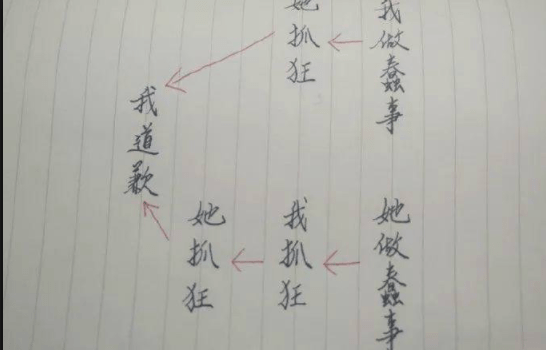 我做蠢事
她抓狂
我道歉
她做蠢事
我抓狂
她抓狂